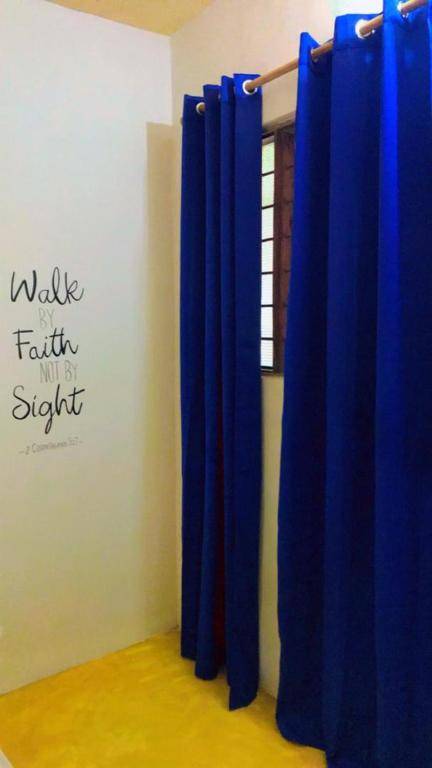 Walk
BY
Faith
NOT BY
Sight
- 2 Corinthians 5:7 -